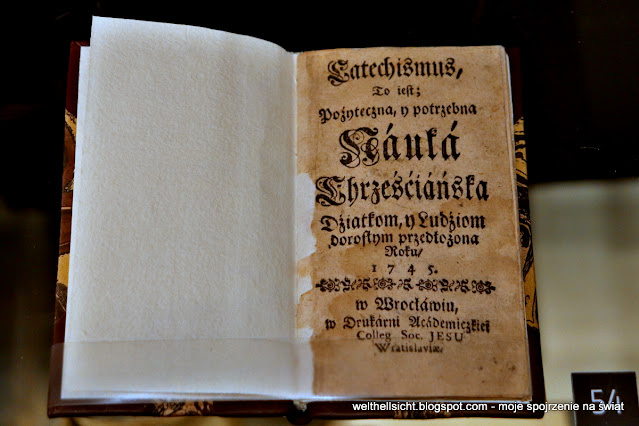 Catechismus,
To iest;
Pożyteczna, y potrzebna
Náuká
Chrześćiáńska
Dźiatkom, y Ludźiom
dorosłym przedłożona
Roku/
1745.
w Wrocłáwiu,
w Drukárni Acádemiczkiei
Colleg Soc. JESU
Wratislaviæ
54
welthellsicht.blogspot.com - moje spojrzenie na świat